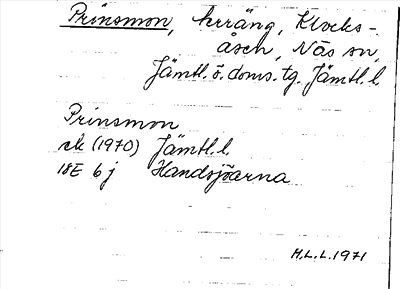 Prinsmon, terräng, Klocks-
åsen, Näs sn,
Jämtl. ö. doms. tg. Jämtl. l.
Prinsmon
ek (1970) Jämtl. l.
18E 6j Handsjöarna
H.L.L. 1971